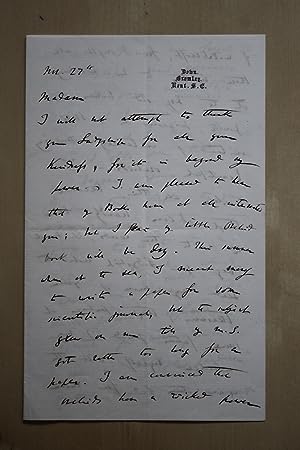 Nov. 27th
Down.
Bromley.
Kent. S.E.
Madam
I will not attempt to thank
your Ladyship for all your
kindness, for it is beyond my
power. I am pleased to hear
that my Books have at all interested
you; but I fear my little Orchid
book will be
This summer
when at the sea, I
to write a paper for some
scientific journal, but to my
my M.S.
got rather too long for a
paper. I am convinced that
orchids have a wicked power